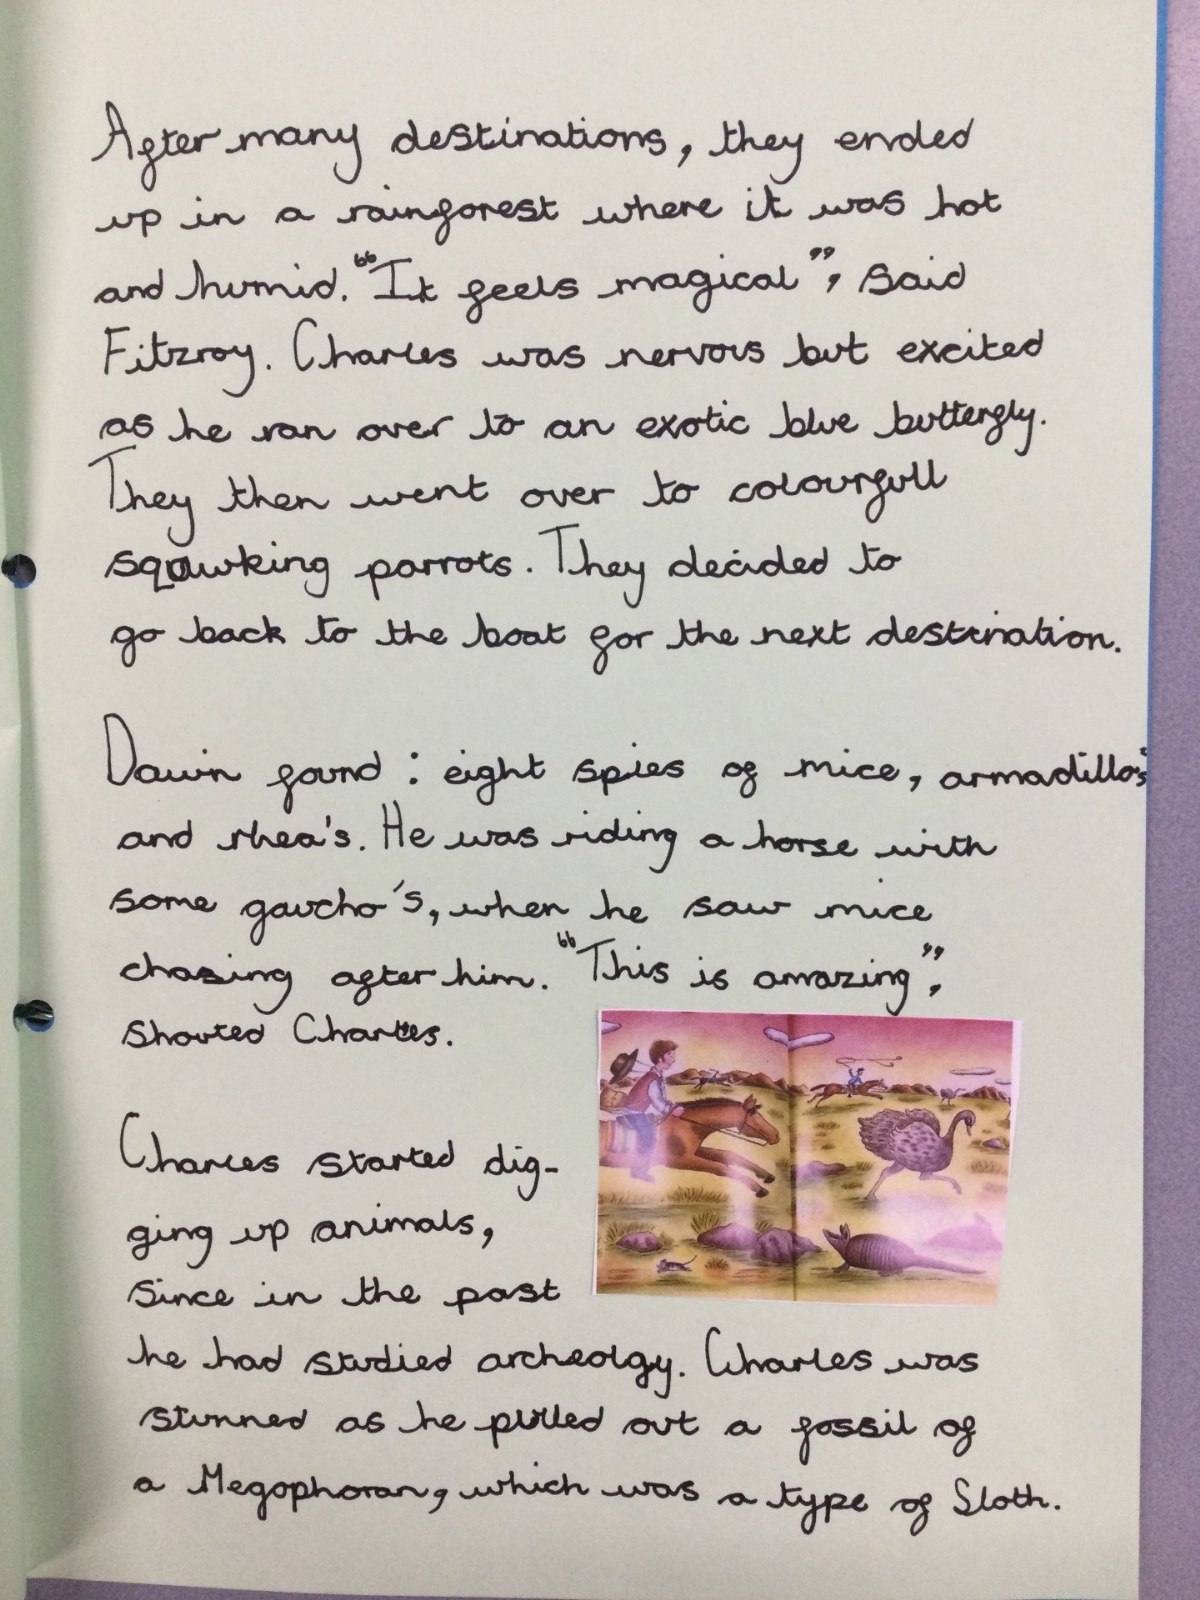 After many destinations, they ended
up in a rainforest where it was hot
and humid. "It feels magical", said
Fitzroy. Charles was nervous but excited
as he ran over to an exotic blue butterfly.
They then went over to colourfull
squwking parrots. They decided to
go back to the boat for the next destination.
Dawin found : eight spies of mice, armadillo's
and rhea's. He was riding a horse with
some gaucho's, when he saw mice
chasing after him. "This is amazing",
shouted Charles.
Charles started dig-
ging up animals,
since in the past
he had studied archeolgy. Charles was
stunned as he pulled out a fossil of
a Megophoran, which was a type of Sloth.